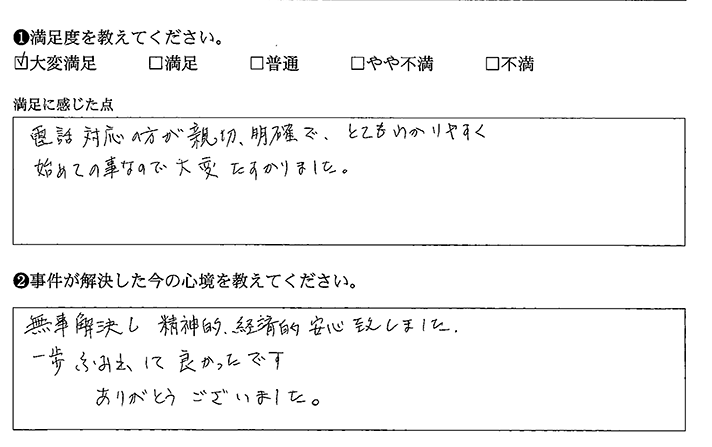 ❶満足度を教えてください。
☑大変満足 □満足 □普通 □やや不満 □不満
満足に感じた点
電話対応の方が親切、明確で、とてもわかりやすく
始めての事なので大変たすかりました。
❷事件が解決した今の心境を教えてください。
無事解決し 精神的、経済的安心致しました.
一歩ふみ出して良かったです
ありがとうございました。